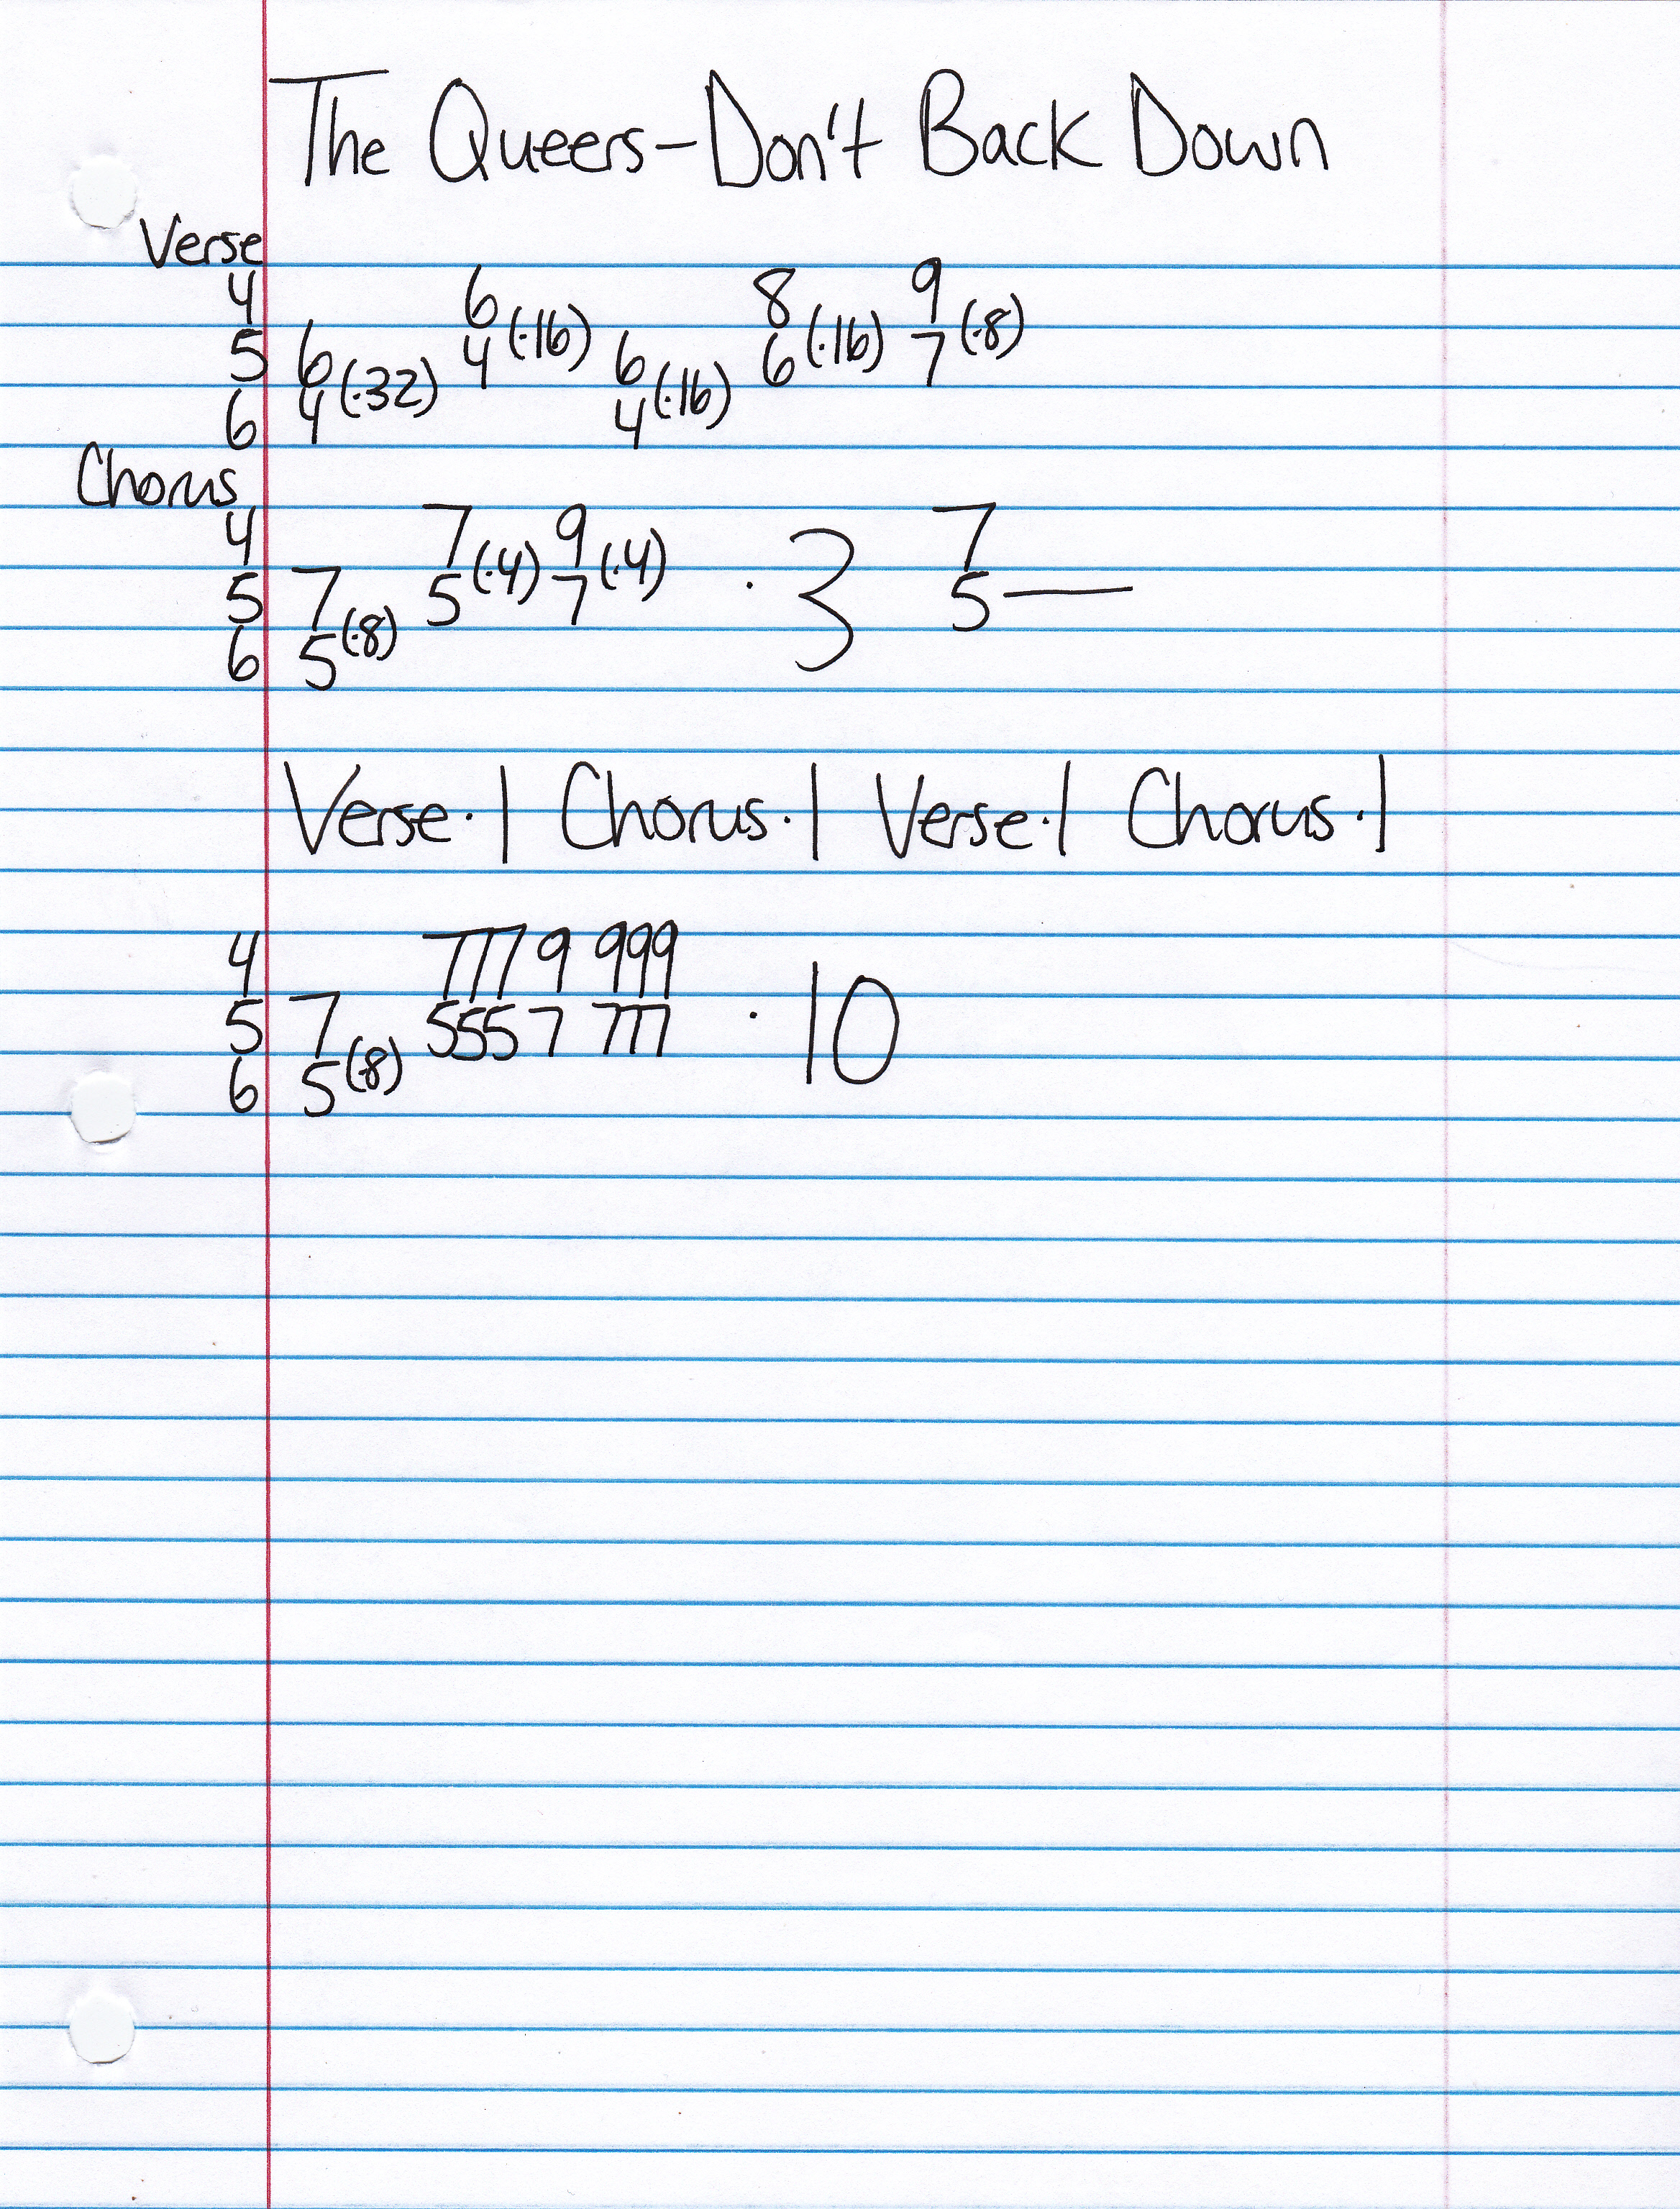 The Queers-Don't Back Down
Verse
4 6 8 9
5 6 4 (·16) 6 6 (·16) 7 (·8)
6 4 (·32) 4 (·16)
Chorus
4 7 9 7
5 7 5 (·4) 7 (·4) · 3 5—
6 5 (·8)
Verse·1 Chorus·1 Verse·1 Chorus·1
4 7779 999
5 7 5557 777 · 10
6 5 (·8)